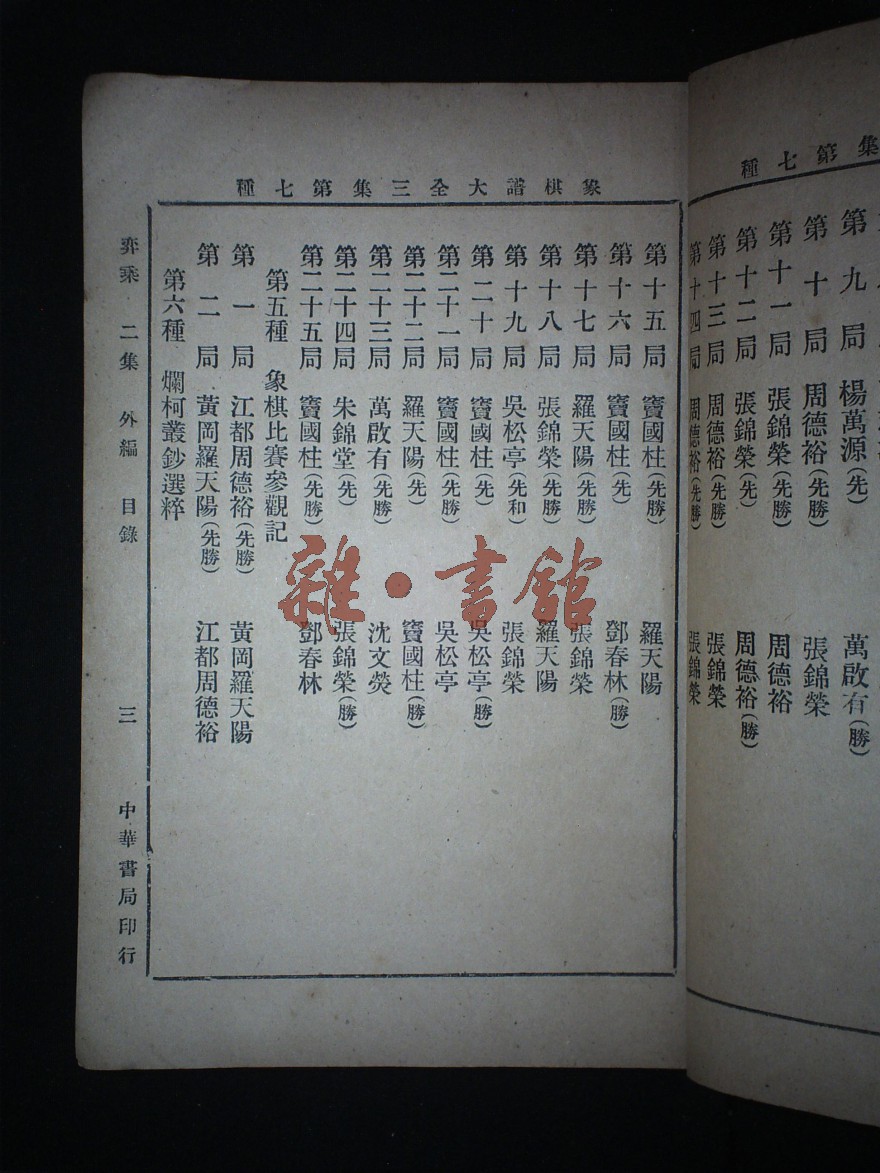 集第七種
第九局 楊萬源(先) 萬啟有(勝)
第十局 周德裕(先勝) 張錦榮
第十一局 張錦榮(先勝) 周德裕
第十二局 張錦榮(先) 周德裕(勝)
第十三局 周德裕(先勝) 張錦榮
第十四局 周德裕(先勝) 張錦榮
象棋譜大全三集第七種
第十五局 竇國柱(先勝) 羅天陽
第十六局 竇國柱(先) 鄧春林(勝)
第十七局 羅天陽(先勝) 張錦榮
第十八局 張錦榮(先勝) 羅天陽
第十九局 吳松亭(先和) 張錦榮
第二十局 竇國柱(先) 吳松亭(勝)
第二十一局 竇國柱(先勝) 吳松亭
第二十二局 羅天陽(先) 竇國柱(勝)
第二十三局 萬啟有(先勝) 沈文熒
第二十四局 朱錦堂(先) 張錦榮(勝)
第二十五局 竇國柱(先勝) 鄧春林
第五種 象棋比賽參觀記
第一局 江都周德裕(先勝) 黃岡羅天陽
第二局 黃岡羅天陽(先勝) 江都周德裕
第六種 爛柯叢鈔選粹
弈乘 二集 外編 目錄 三 中華書局印行
雜·書館